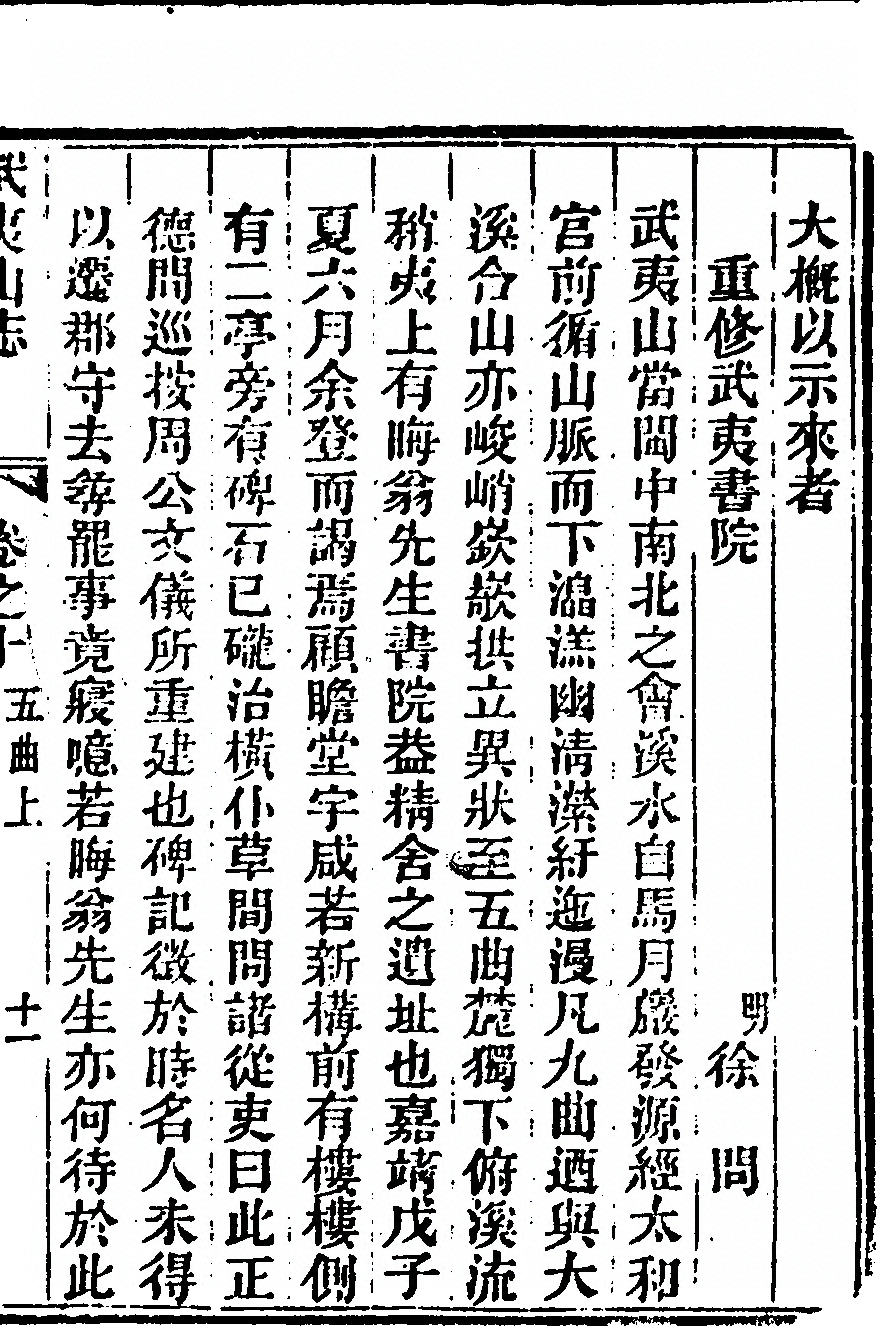 大槪以示來者
重修武夷書院
明徐問
武夷山當閩中南北之會溪水自馬月巖發源經太和
宮前循山脈而下潝漾幽淸瀠紆迤漫凡九曲迺與大
溪合山亦峻峭嶔嶔拱立異狀至五曲麓獨下俯溪流
稍夷上有晦翁先生書院葢精舍之遺址也嘉靖戊子
夏六月余登而謁焉顧瞻堂宇咸若新構前有樓樓側
有二亭旁有碑石已礲治橫仆草間問諸從吏曰此正
德間巡按周公文儀所重建也碑記徵於時名人未得
以遷郡守去尋罷事竟寢噫若晦翁先生亦何待於此
武夷山志
卷之十
五曲上
十一